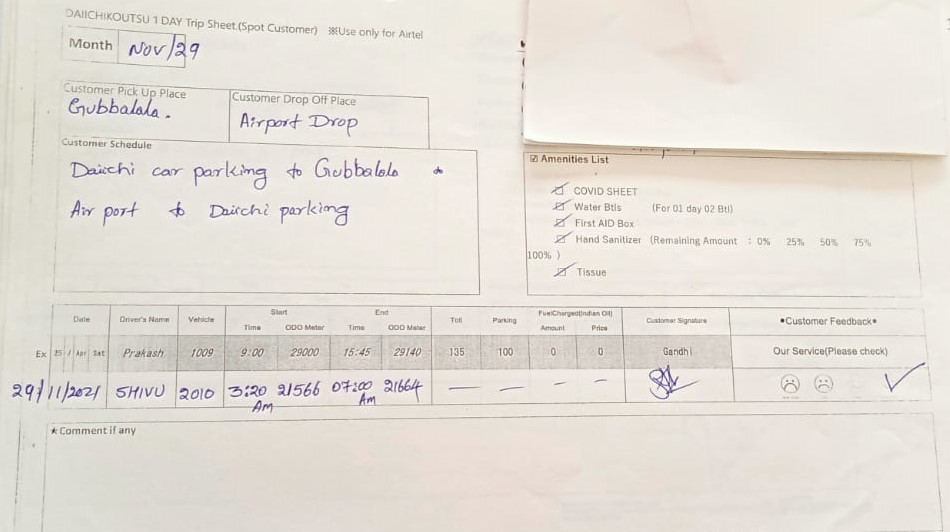 DAIICHIKOUTSU 1 DAY Trip Sheet.(Spot Customer) ※Use only for Airtel
Month Nov/29
Customer Pick Up Place
Gubbalala.
Customer Drop Off Place
Airport Drop
Customer Schedule
Daiichi car parking to Gubbalala to
Airport to Daiichi parking
☑ Amenities List
☑ COVID SHEET
☑ Water Btls (For 01 day 02 Btl)
☑ First AID Box
☑ Hand Sanitizer (Remaining Amount : 0% 25% 50% 75%
100% )
☑ Tissue
Date Driver's Name Vehicle Start End Toll Parking FuelCharged(Indian Oil) Customer Signature ●Customer Feedback●
Time ODO Meter Time ODO Meter Amount Price
Ex 25 / Apr Sat Prakash 1009 9:00 29000 15:45 29140 135 100 0 0 Gandhi Our Service(Please check)
29/11/2021 SHIVU 2010 3:20 Am 21566 07:00 Am 21664 — — — —
★Comment if any